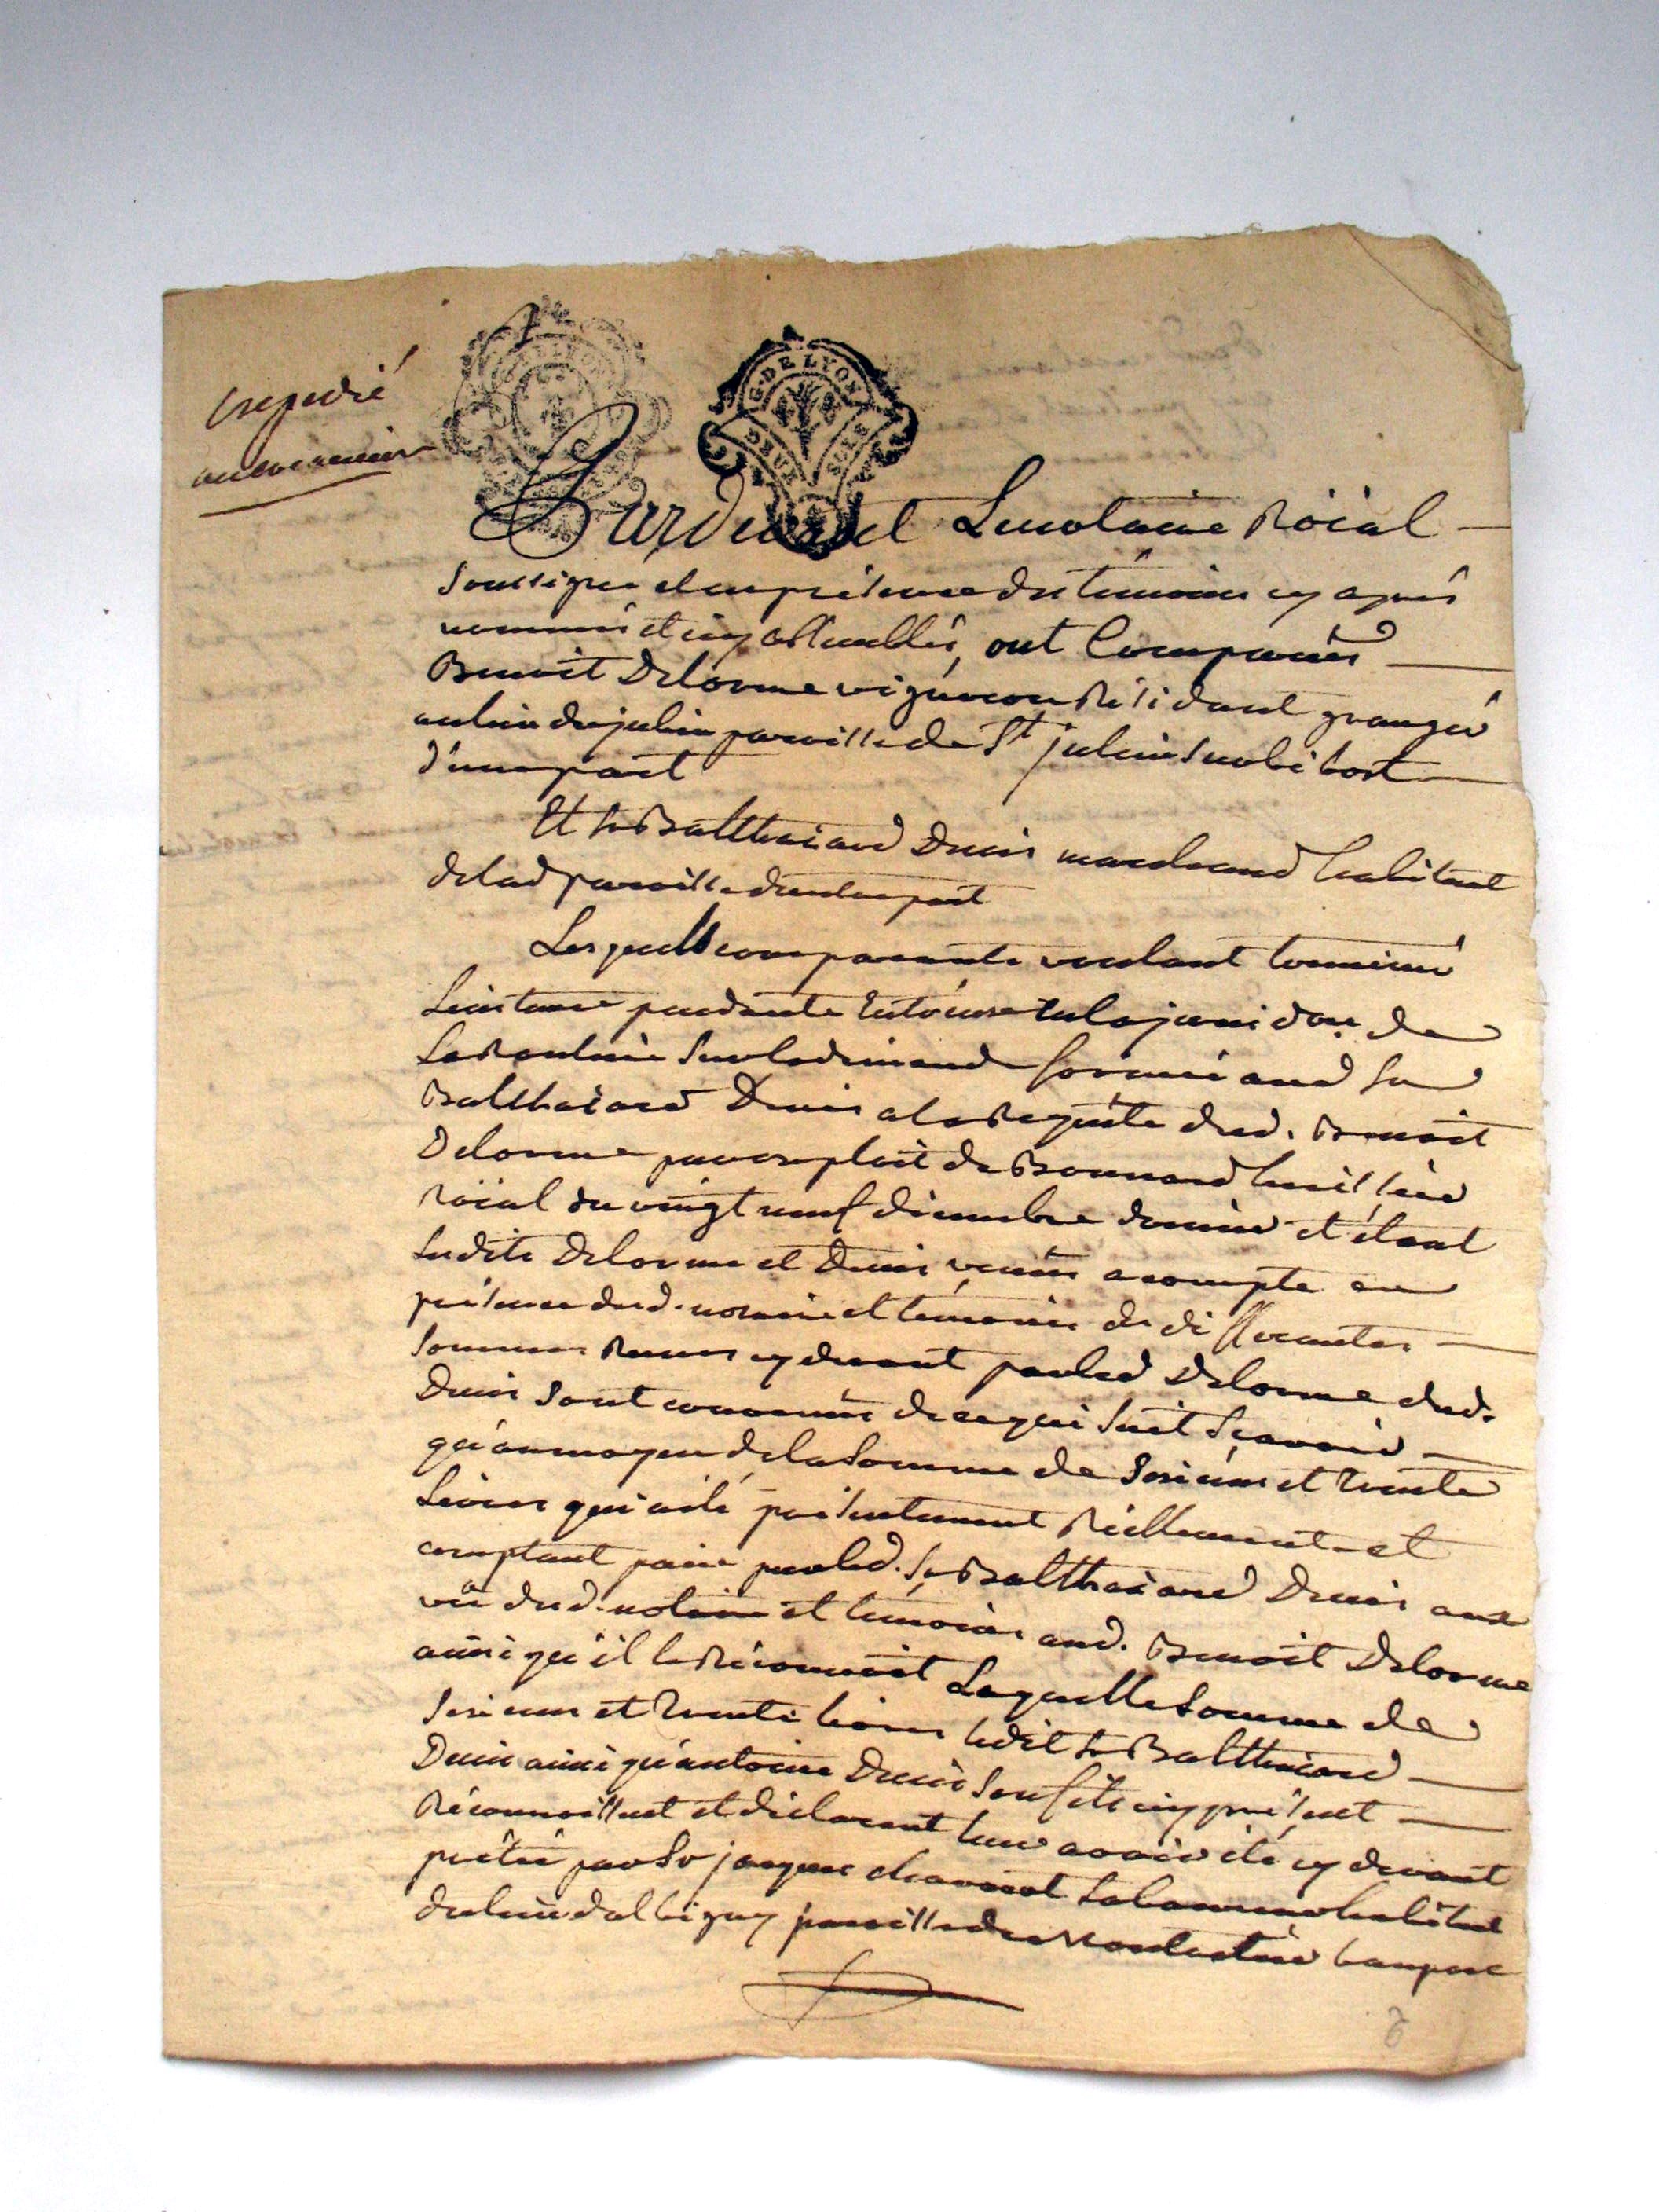 expedié
G. DE LYON
DEUX SOLS
Pardevant Le notaire Roïal
soussigné et en presence des témoins cy après
nommés et cy assemblés, ont Comparus
Benoit Delorme vigneron Résidant granger
au lieu de julin paroisse de St julin sur bibost
d'une part
Et sr Balthazard Denis marchand habitant
de lad paroisse d'autre part
Lesquells comparants voulant terminer
L'instance pendante en la juridon de
sur la demande formée aud sr
Balthazard Denis a la Requête dud. Benoit
Delorme par exploit de Bonnard huissier
Roïal du vingt neuf décembre dernier et étant
lesdits Delorme et Denis venus a compte en
présence dud. notaire et témoins de differantes
sommes Reçues cy devant par led Delorme dud.
Denis sont convenus de ce qui suit Sçavoir
qu'au moyen de la somme de six cens et trente
Livres qui a été présentement Réellement et
comptant païée par led. sr Balthazard Denis aux
vû dud. notaire et témoins aud. Benoit Delorme
ainsi qu'il le Réconnoit Laquelle somme de
six cens et trente livres ledit sr Balthazard
Denis ainsi qu'antoine Denis son fils icy présent
Réconnoissent et déclarent leur avoir été cy devant
prêtée par Sr jacques habitant
du lieu d'albigny paroisse de Montrottier